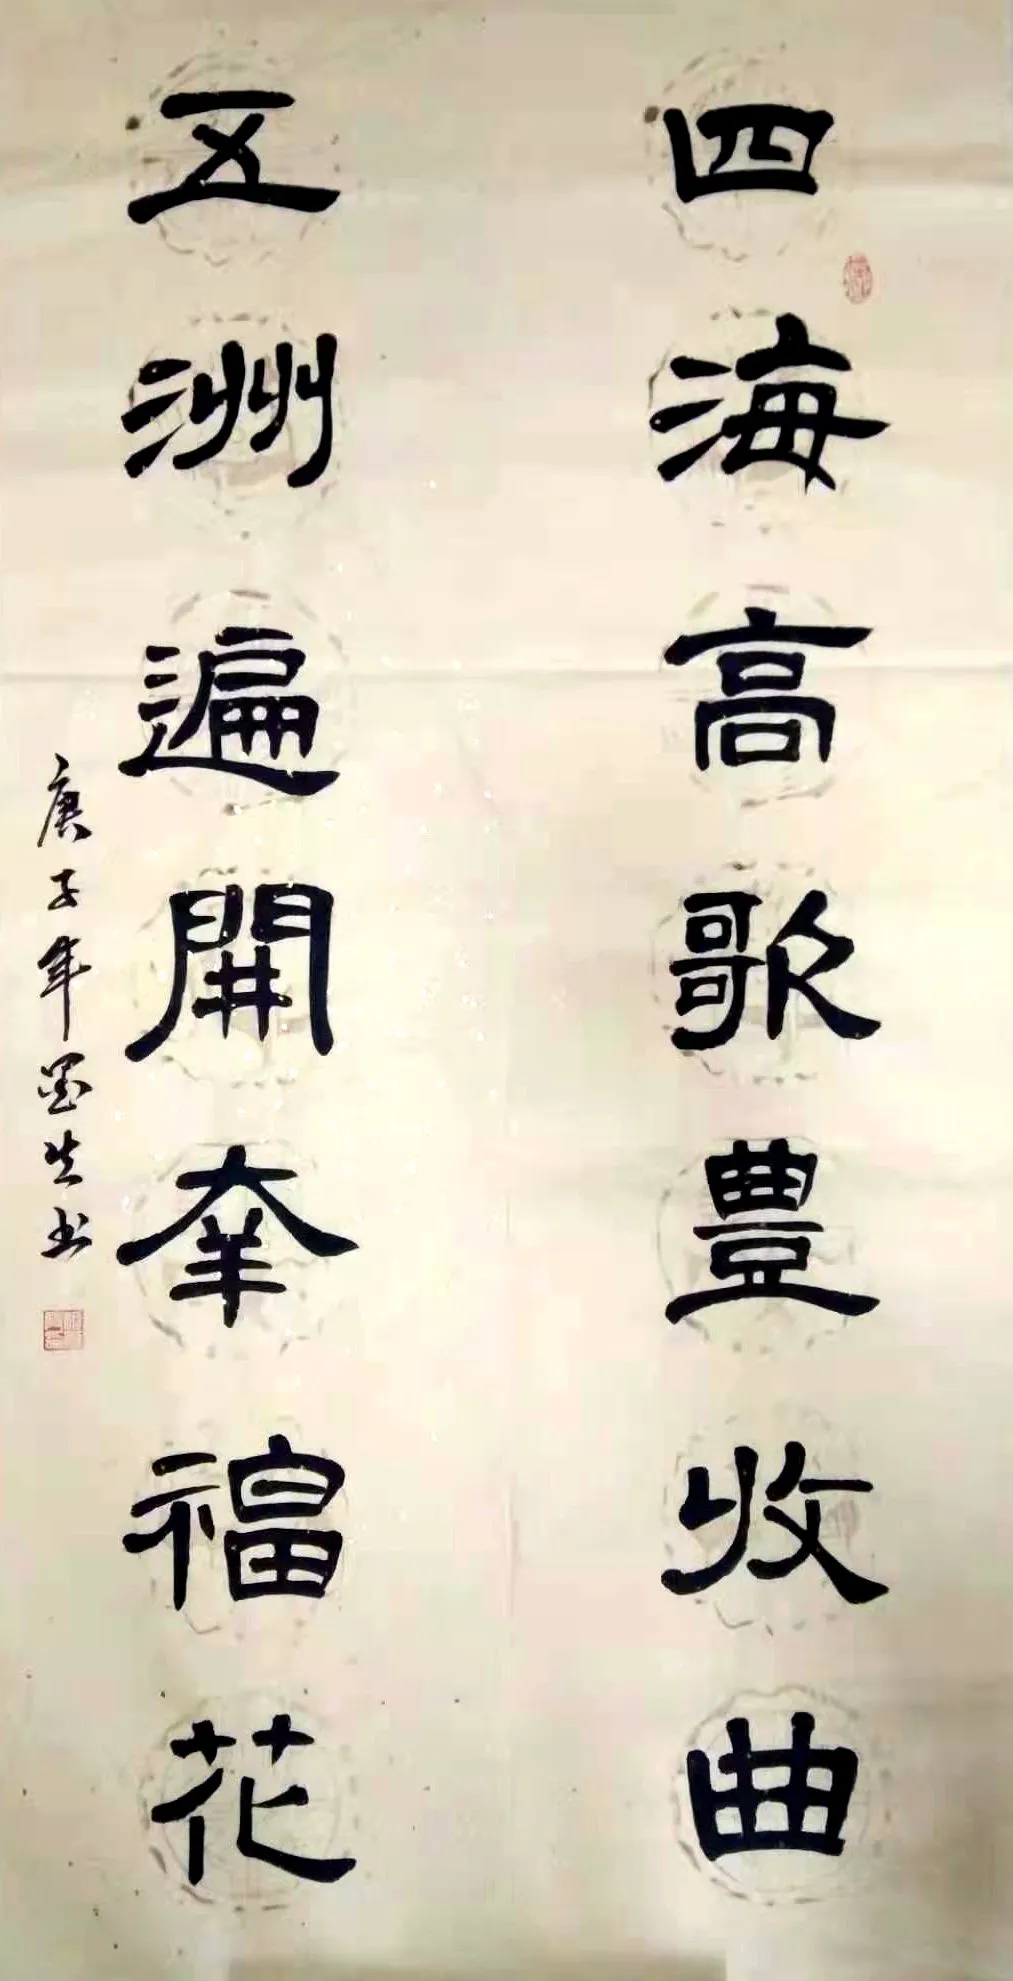 四海高歌豐收曲
五洲遍開幸福花
庚子年墨生书